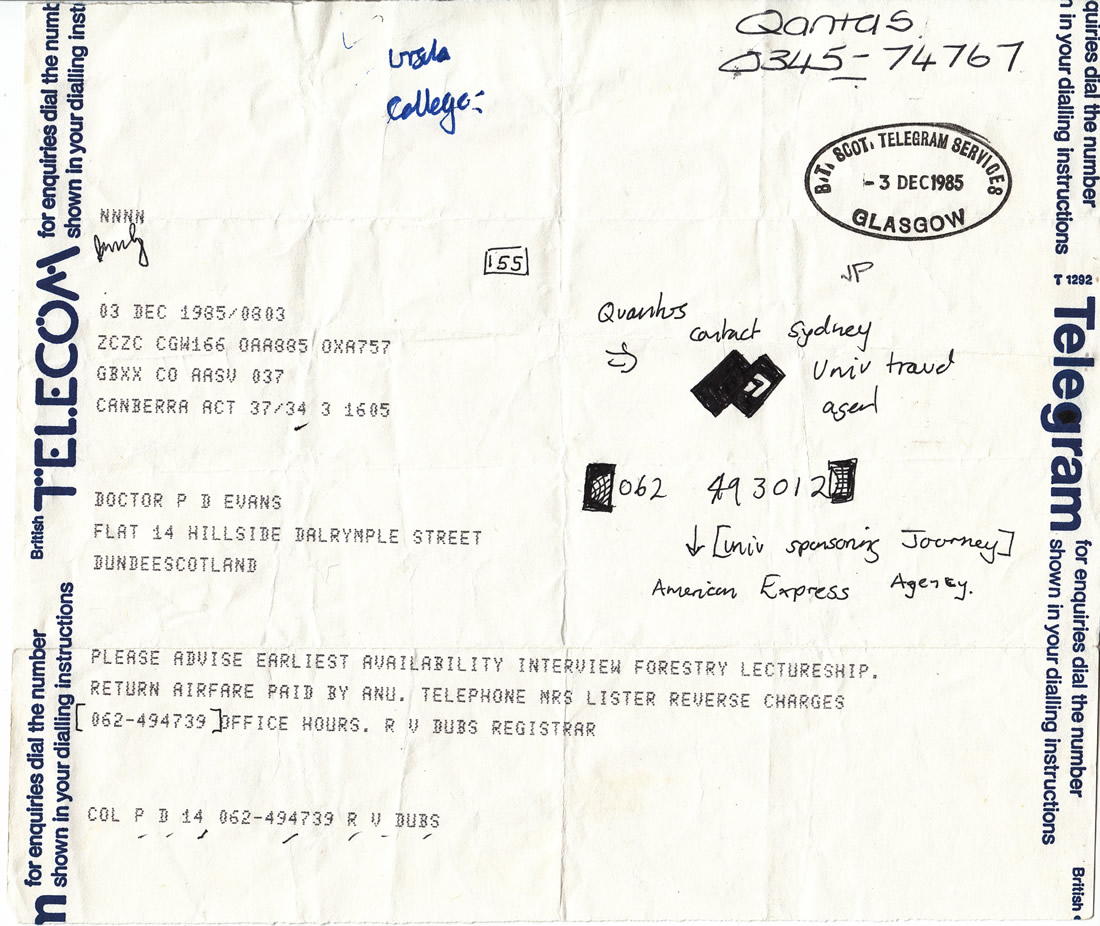 Qantas
0345-74767
Ursula
College:
B.T. SCOT. TELEGRAM SERVICES
- 3 DEC 1985
GLASGOW
NNNN
155
JP
03 DEC 1985/0803
ZCZC CGW166 OAA885 OXA757
GBXX CO AASV 037
CANBERRA ACT 37/34 3 1605
Quantas
contact Sydney
Univ travel
agent
062 493012
↓ [Univ sponsoring Journey]
American Express Agency.
DOCTOR P D EVANS
FLAT 14 HILLSIDE DALRYMPLE STREET
DUNDEESCOTLAND
PLEASE ADVISE EARLIEST AVAILABILITY INTERVIEW FORESTRY LECTURESHIP.
RETURN AIRFARE PAID BY ANU. TELEPHONE MRS LISTER REVERSE CHARGES
[062-494739] OFFICE HOURS. R V DUBS REGISTRAR
COL P D 14 062-494739 R V DUBS
for enquiries dial the numb
shown in your dialling inst
British TELECOM
for enquiries dial the number
shown in your dialling instructions
m
quiries dial the number
n in your dialling instructions
T 1292
Telegram
for enquiries dial the number
shown in your dialling instructions
British